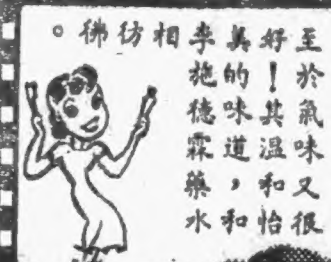 至於氣味又很
好！其溫和怡
異的味道，和
李施德霖藥水
相彷彿。